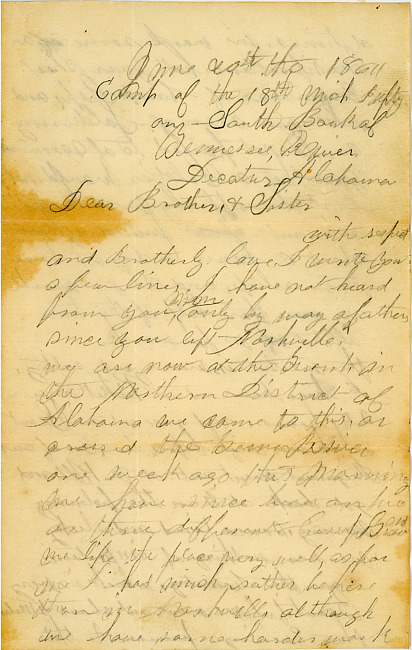 June 20th the 1864
Camp of the 18th Mich Infty
on South Bank of
Tennessee River
Decatur, Alabama
Dear Brother, & Sister
with respect
and Brotherly love I write you
a few lines, I have not heard
from you only by way of others
since you left Nashville.
we are now at the front in
the Northern District of
Alabama we came to this or
crossed the Tenn River
one week ago this Morning
we have since had
different
we like the place very well, as for
me I had much rather be here
than in Nashville although
we have some harder work